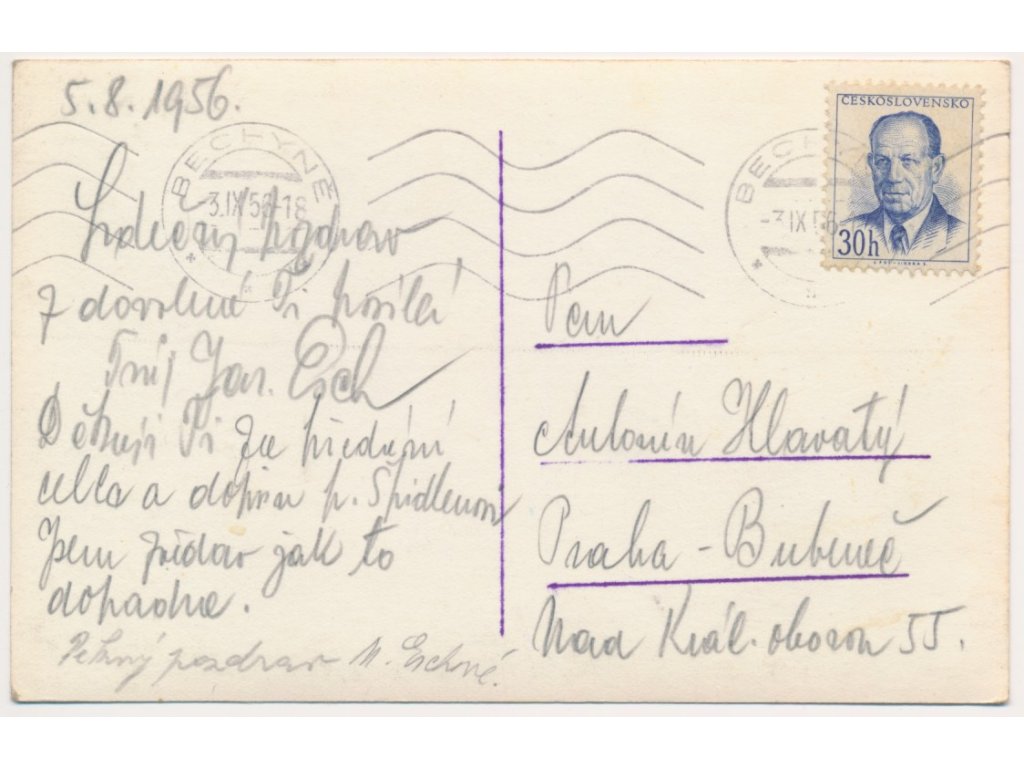 5.8.1956.
BECHYNĚ
-3.IX 56-18
Srdečný pozdrav
z dovolené Ti posílá
Tvůj Jar. Esch
Děkuji Ti za předání
cella a dopisu p. Špidlenovi
Jsem zvědav jak to
dopadne.
Pěkný pozdrav M. Eschová.
BECHYNĚ
-3.IX 56
ČESKOSLOVENSKO
30h
Pan
Antonín Hlavatý
Praha - Bubeneč
Nad Král. oborou 55.